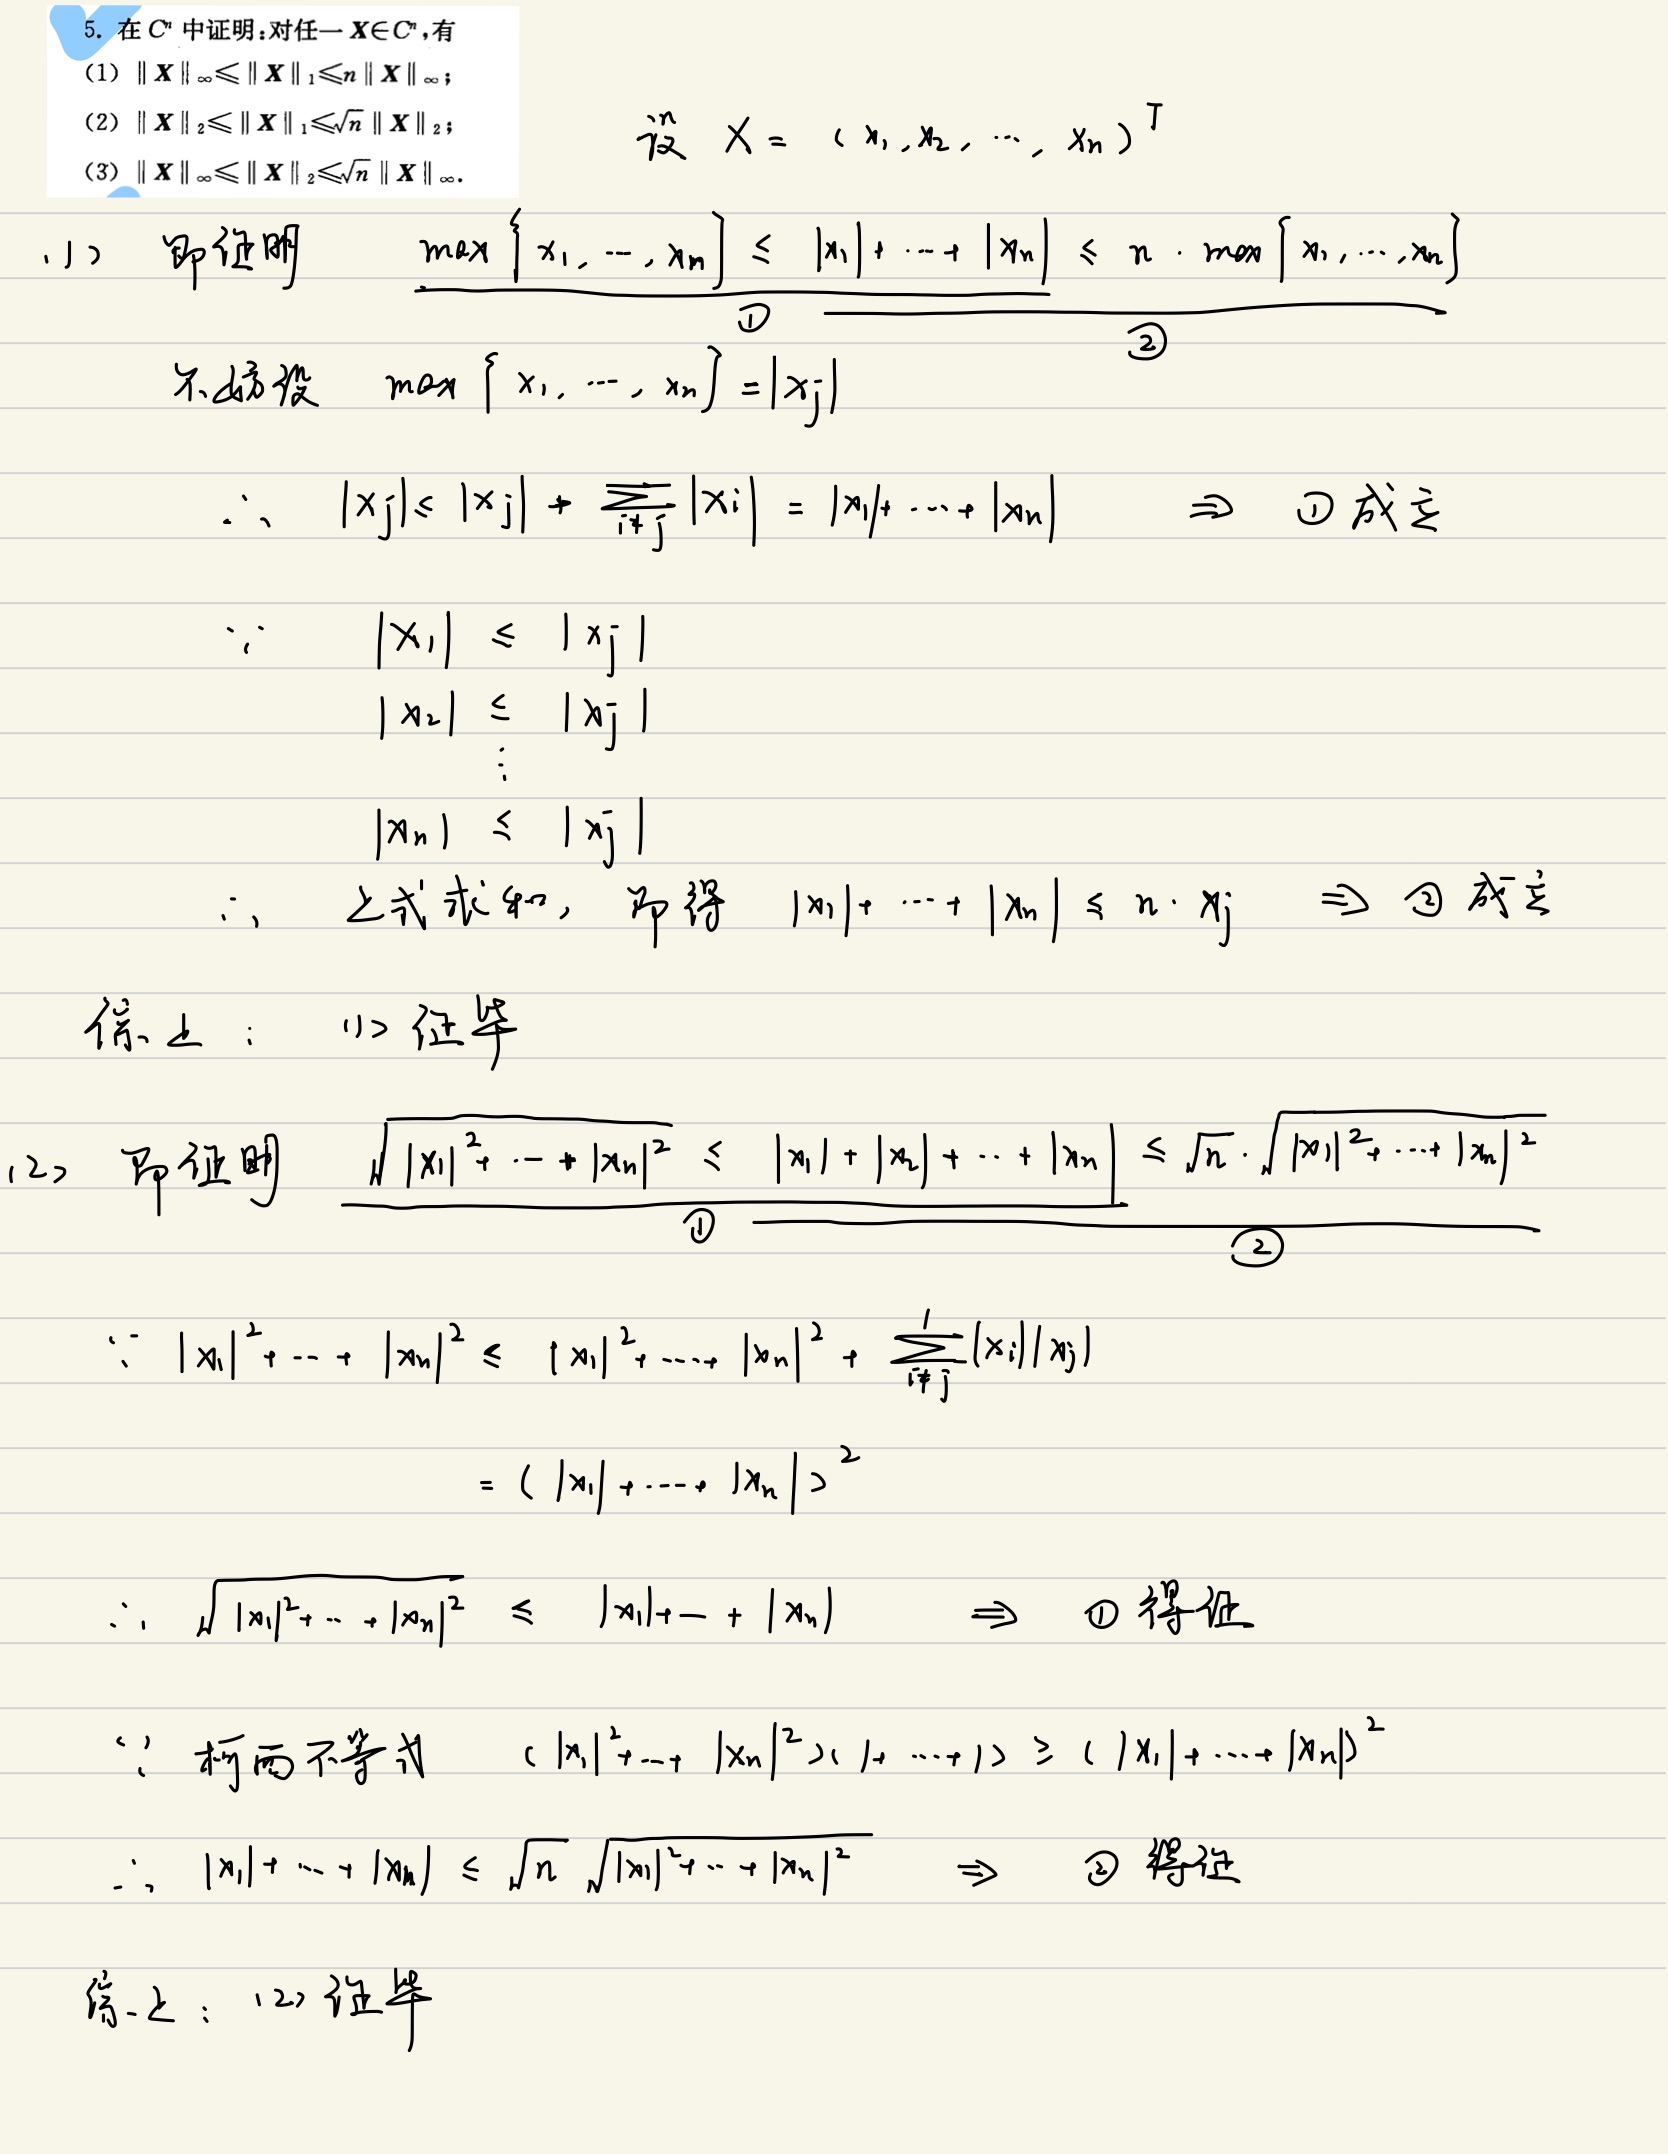 5. 在 Cⁿ 中证明:对任一 X∈Cⁿ,有
(1) ‖X‖∞≤‖X‖₁≤n‖X‖∞;
(2) ‖X‖₂≤‖X‖₁≤√n‖X‖₂;
(3) ‖X‖∞≤‖X‖₂≤√n‖X‖∞.
设 X = (x₁, x₂, ⋯, xₙ)ᵀ
(1) 即证明 max{x₁, ⋯, xₙ} ≤ |x₁| + ⋯ + |xₙ| ≤ n · max{x₁, ⋯, xₙ}
① ②
不妨设 max{x₁, ⋯, xₙ} = |xⱼ|
∴ |xⱼ| ≤ |xⱼ| + ∑_{i≠j} |xᵢ| = |x₁| + ⋯ + |xₙ| ⇒ ① 成立
∵ |x₁| ≤ |xⱼ|
|x₂| ≤ |xⱼ|
⋮
|xₙ| ≤ |xⱼ|
∴ 上式求和, 即得 |x₁| + ⋯ + |xₙ| ≤ n · xⱼ ⇒ ② 成立
综上: (1) 证毕
(2) 即证明 √(|x₁|² + ⋯ + |xₙ|²) ≤ |x₁| + |x₂| + ⋯ + |xₙ| ≤ √n · √(|x₁|² + ⋯ + |xₙ|²)
① ②
∵ |x₁|² + ⋯ + |xₙ|² ≤ |x₁|² + ⋯ + |xₙ|² + ∑_{i≠j} |xᵢ||xⱼ|
= (|x₁| + ⋯ + |xₙ|)²
∴ √(|x₁|² + ⋯ + |xₙ|²) ≤ |x₁| + ⋯ + |xₙ| ⇒ ① 得证
∵ 柯西不等式 (|x₁|² + ⋯ + |xₙ|²)(1 + ⋯ + 1) ≥ (|x₁| + ⋯ + |xₙ|)²
∴ |x₁| + ⋯ + |xₙ| ≤ √n √(|x₁|² + ⋯ + |xₙ|²) ⇒ ② 得证
综上: (2) 证毕